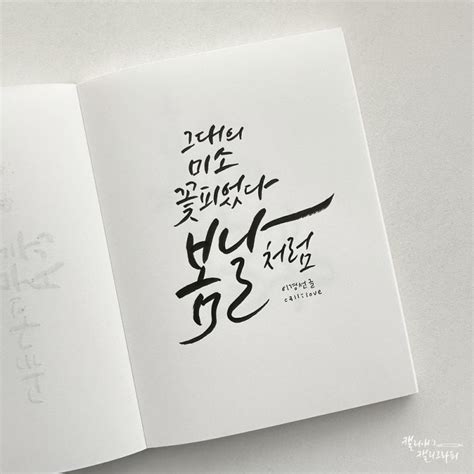 그대의
미소
꽃피었다
봄날처럼
이경선글
call:love
캘리그라피